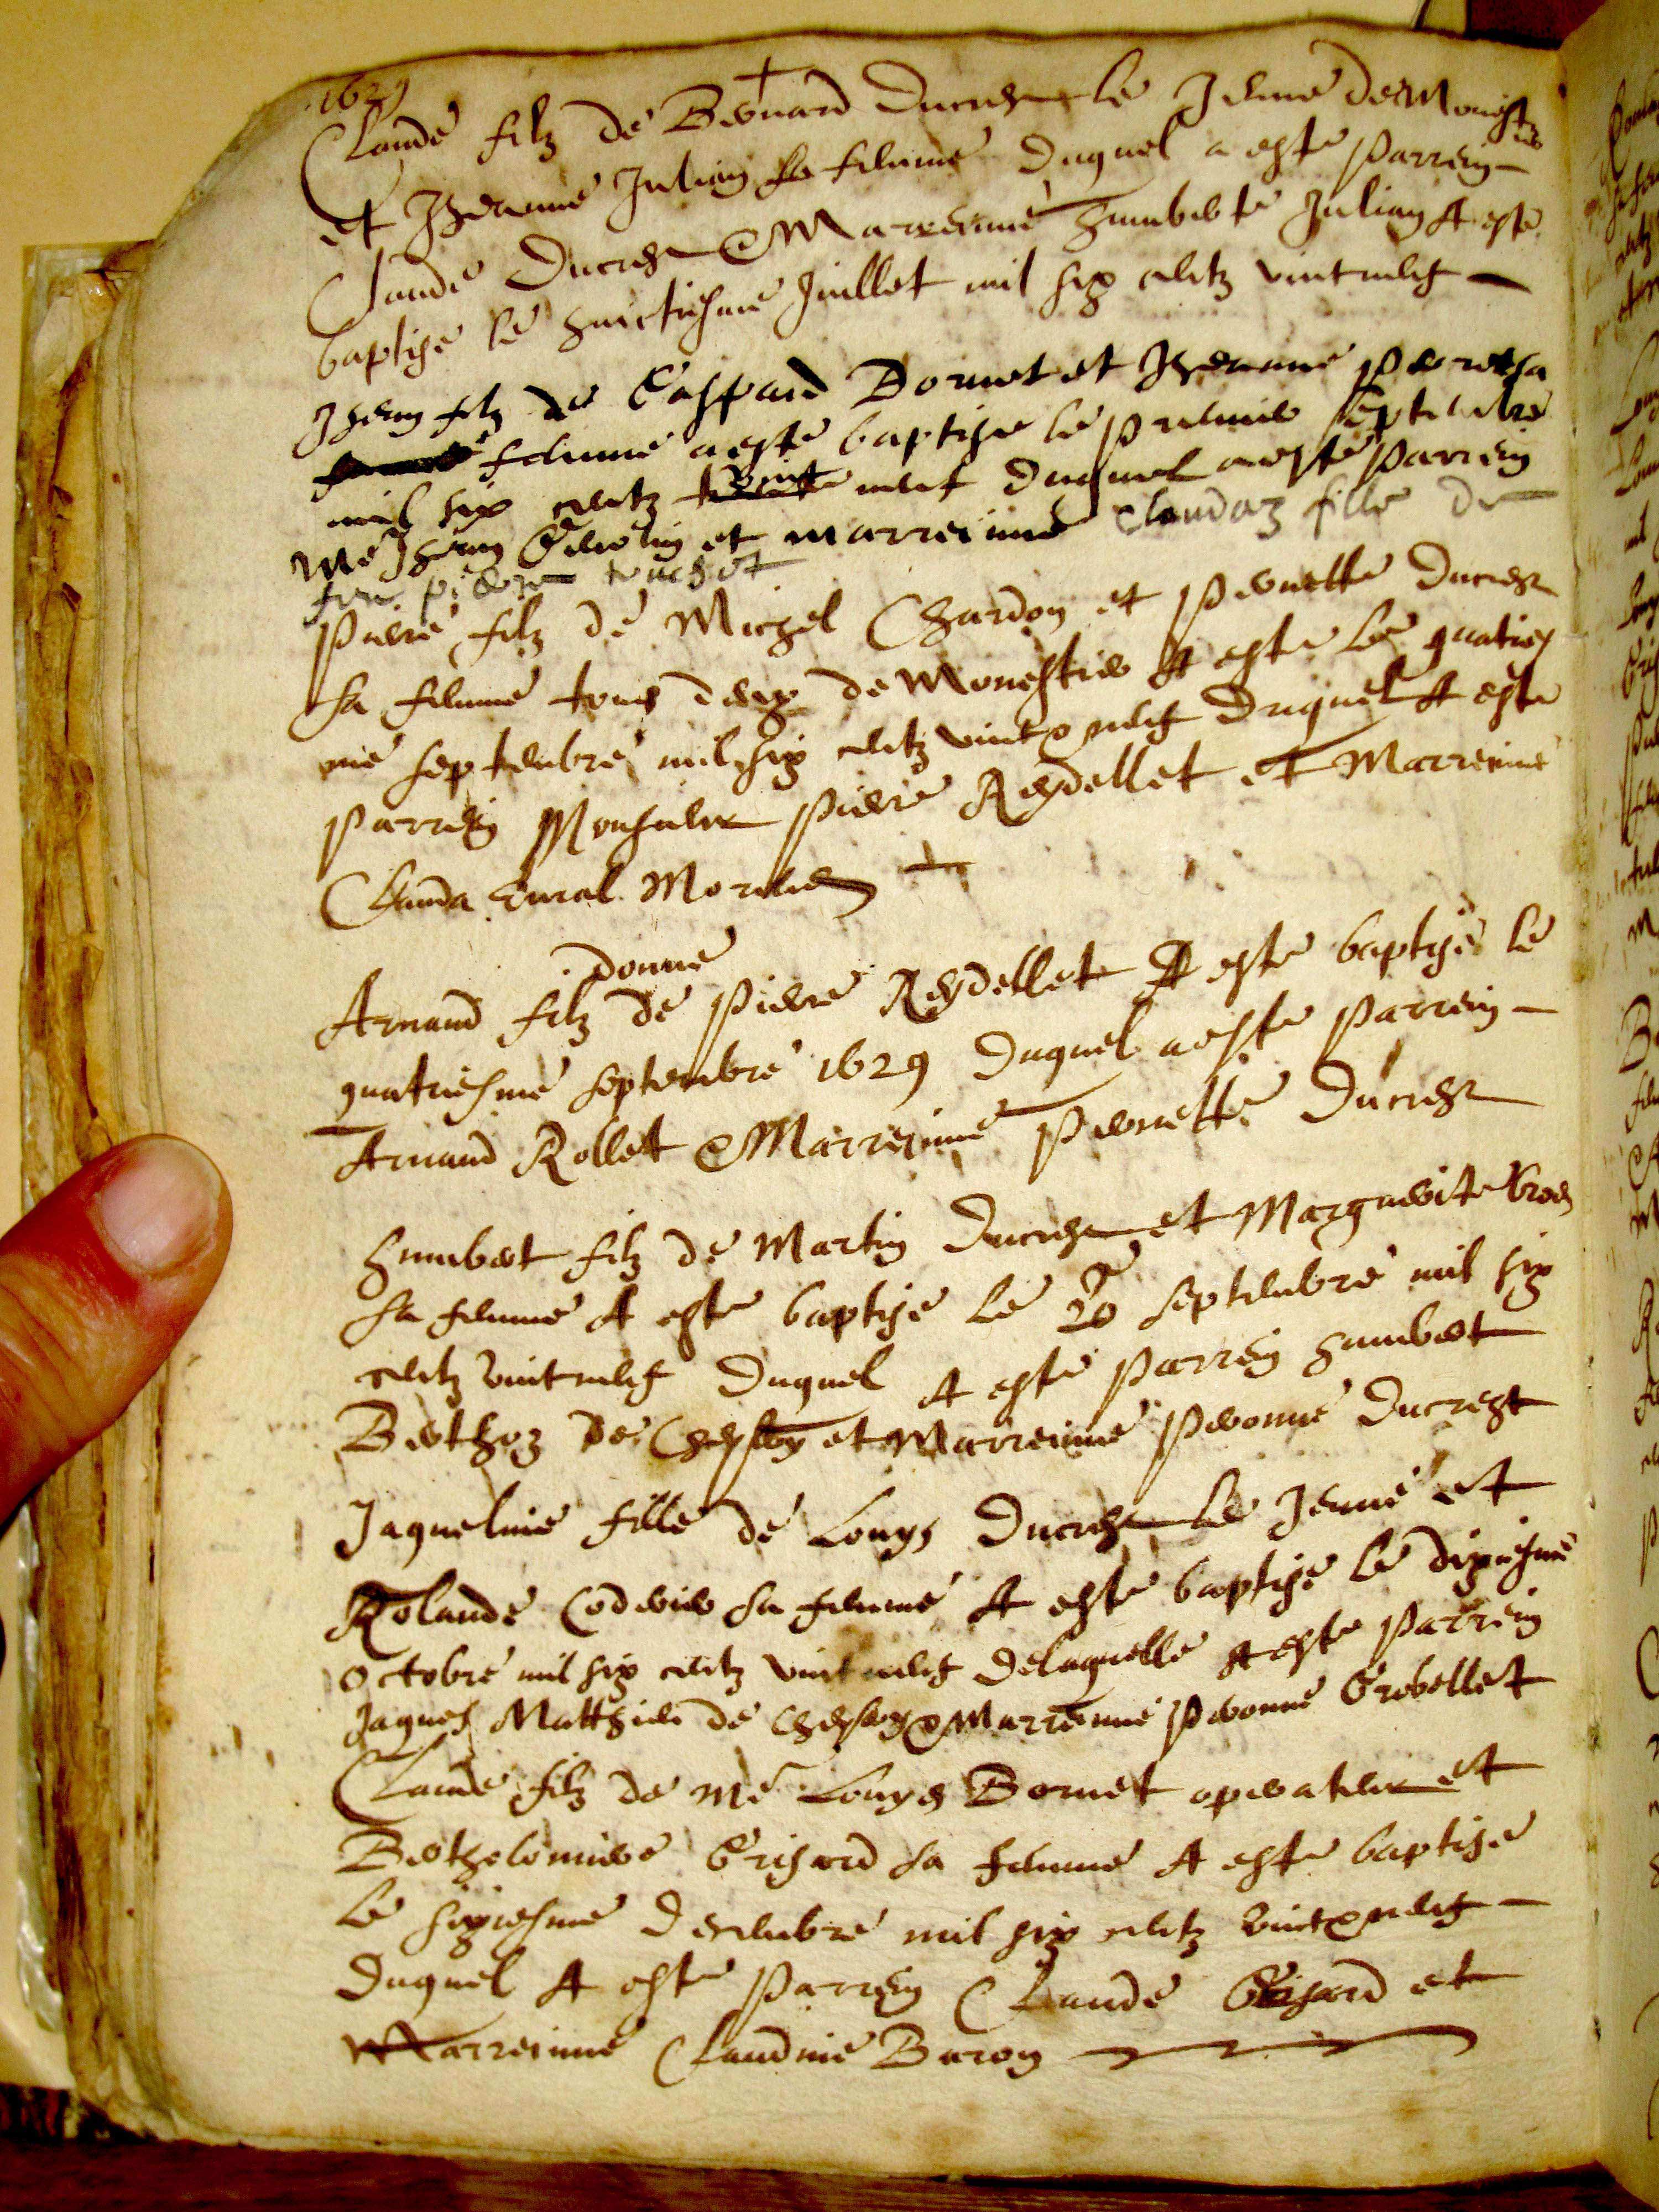 1629
Claude filz de Bernard Ducrest le Jeune de Monestier
et Jheanne Julian sa femme duquel a este Parrein
Claude Ducrest & Marreinne Humberte Julian A este
baptise le huictiesme Juillet mil six centz vint neuf
Jhean filz de Gaspard Bornet et Jheanne sa
femme a este baptise le premier septembre
mil six centz vint neuf duquel a este parrein
Me Jhean et marreinne Claudaz fille de
feu
Pierre filz de Michel Chardon et Pernette Ducrest
sa femme tous deux de Monestier A este le quaties
me septembre mil six centz vint & neuf Duquel A este
parrein Monsieur Pierre Reydellet et Marreinne
Clauda
donné
Arnaud filz de Pierre Reydellet A este baptisé le
quatriesme septembre 1629 Duquel a este parrein
Arnaud Rollet & Marreinne Pernette Ducrest
Humbert filz de Martin Ducrest et Marguerite
sa femme A este baptise le 20 septembre mil six
centz vint neuf Duquel A este parrein Humbert
Berthoz de et Marreinne Pernonne Ducrest
Jaquelinne fille de Louys Ducrest le Jeune et
Rolande sa femme A este baptise le dixiesme
Octobre mil six centz vint neuf de laquelle A este Parrein
Jaques Matthieu de & Marrenne Pernonne Grobellet
Claude filz de Me Louys Bornet operateur et
Bertholomiere Grisard sa femme A este baptise
le sixiesme Decembre mil six centz vint & neuf
Duquel A este parrein Claude Grisard et
Marreinne Claudine Baron